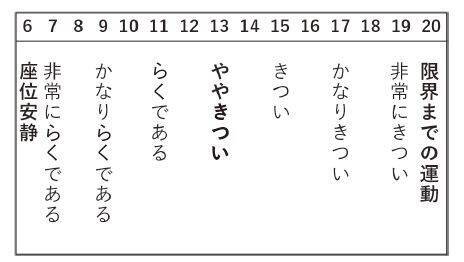 6 7 8 9 10 11 12 13 14 15 16 17 18 19 20
座位安静
非常にらくである
かなりらくである
らくである
ややきつい
きつい
かなりきつい
非常にきつい
限界までの運動